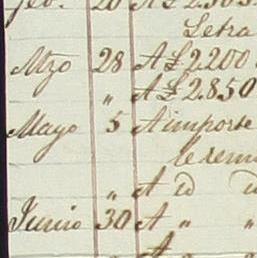 feb. 20 A £ 2303
Letra
Mzo 28 A £ 2200
" A £ 2850
Mayo 5 A importe
le remi
" A id id
Junio 30 A " "
" A "